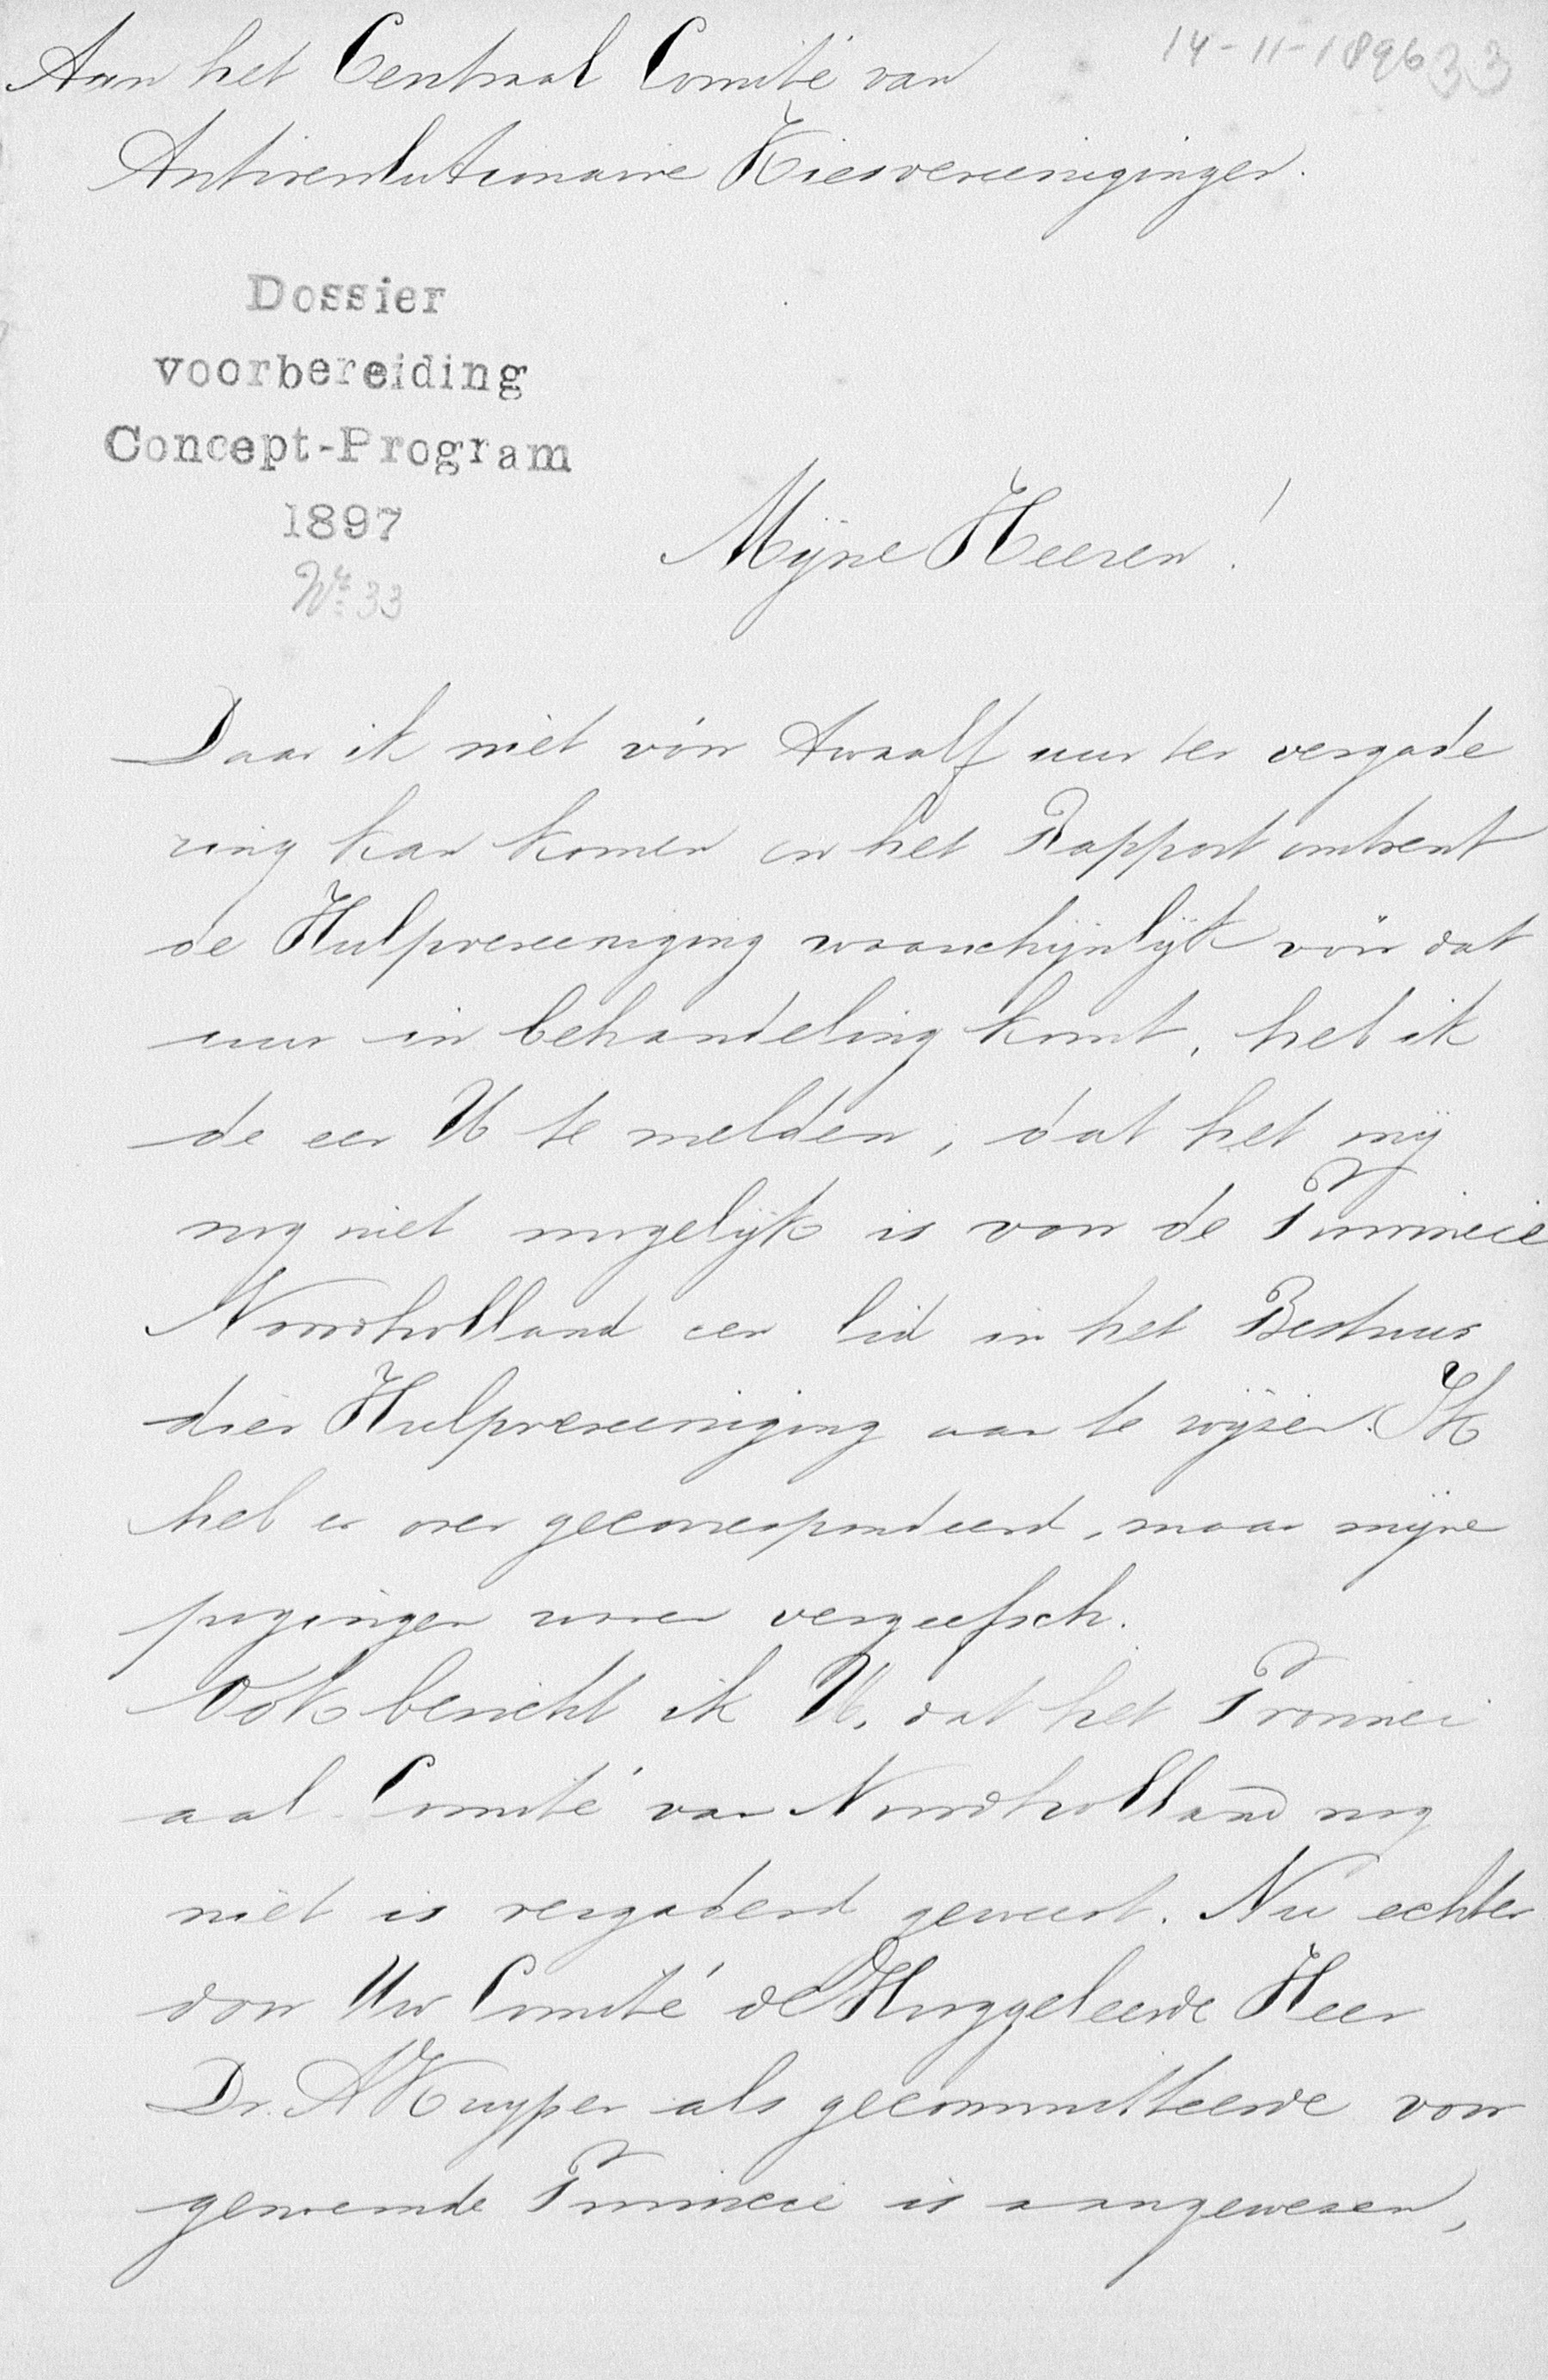 14-11-1896 33
Aan het Centraal Comité van
Antirevolutionaire Kiesvereenigingen.
Dossier
voorbereiding
Concept-Program
1897
No 33
Mijne Heeren!
Daar ik niet vóór twaalf uur ter vergade
ring kan komen en het Rapport omtrent
de Hulpvereeniging waarschijnlijk vóór dat
uur in behandeling komt, heb ik
de eer U te melden, dat het mij
nog niet mogelijk is voor de Provincie
Noordholland een lid in het Bestuur
dier Hulpvereeniging aan te wijzen. Ik
heb er over gecorrespondeerd, maar mijne
pogingen waren vergeefsch.
Ook bericht ik U, dat het Provinci
aal Comité van Noordholland nog
niet is vergaderd geweest. Nu echter
door Uw Comité de Hooggeleerde Heer
Dr. A Kuyper als gecommitteerde voor
genoemde Provincie is aangewezen,